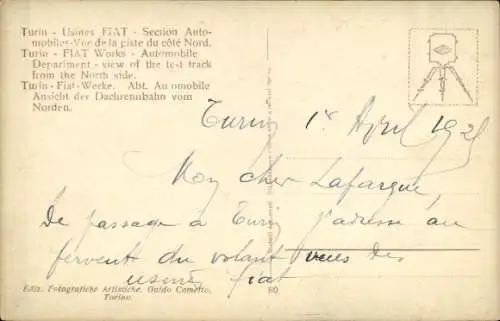 Turin - Usines FIAT - Section Auto-
mobiles-Vor de la piste du côté Nord.
Turin - FIAT Works - Automobile
Department - view of the test track
from the North side.
Turin-Fiat-Werke. Abt. Automobile
Ansicht der Dachrennbahn vom
Norden.
Turin 1er April 192
Mon cher Lafargue,
De passage à Turin j'adresse au
fervent du volant vues des
usines fiat
Ediz. Fotografiche Artistiche, Guido Cometto,
Torino.
80